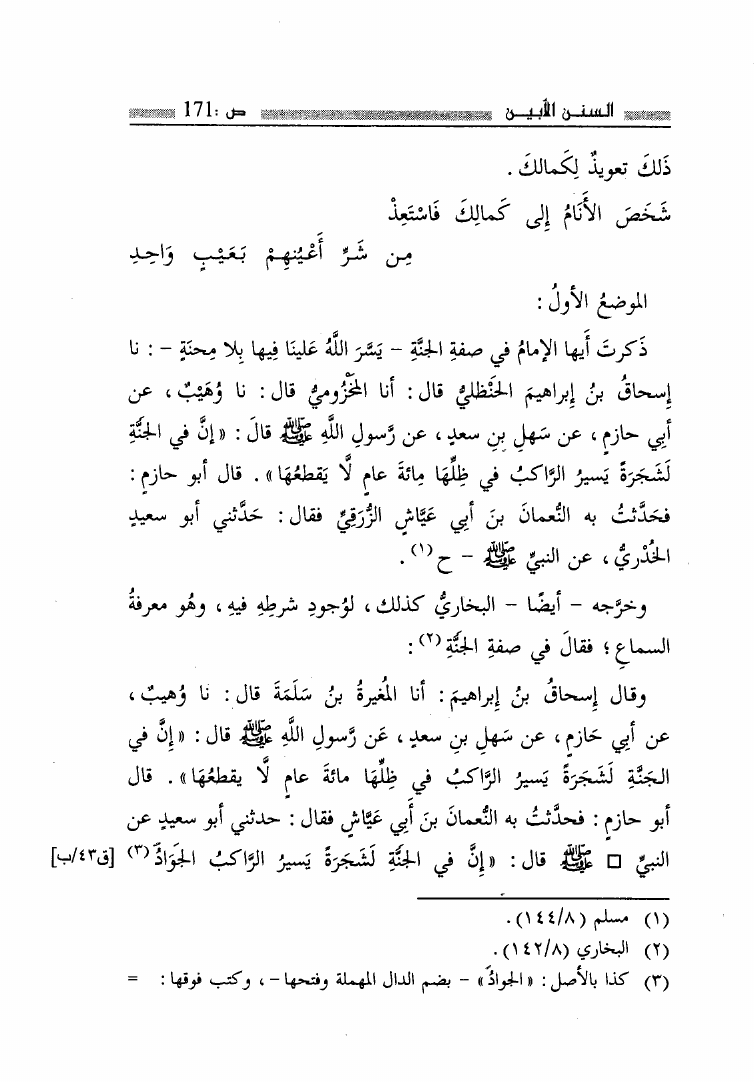 السنن الأبين ص :171
ذَلكَ تعويذٌ لِكَمالكَ .
شَخَصَ الأَنَامُ إِلى كَمالِكَ فَاسْتَعِذْ
مِن شَرِّ أَعْيُنهِمْ بَعَيْبٍ وَاحِدِ
الموضعُ الأولُ :
ذَكرتَ أَيها الإمامُ في صفةِ الجنَّةِ - يَسَّرَ اللَّهُ عَلينَا فِيها بِلا مِحنَةٍ - : نا
إِسحاقُ بنُ إِبراهيمَ الحَنْظليُّ قال : أنا المَخْزُوميُّ قال : نا وُهَيْبٌ ، عن
أبي حازمٍ ، عن سَهلِ بنِ سعدٍ ، عن رَّسولِ اللَّهِ ﷺ قالَ : «إنَّ في الجنَّةِ
لَشَجَرَةً يَسيرُ الرَّاكبُ في ظِلِّهَا مِائةَ عامٍ لَّا يَقطعُهَا» . قال أبو حازمٍ :
فحَدَّثتُ به النُّعمانَ بنَ أبي عَيَّاشٍ الزُّرَقِيِّ فقال : حَدَّثني أبو سعيدٍ
الخُدْريُّ ، عن النبيِّ ﷺ - ح (١) .
وخرَّجه - أيضًا - البخاريُّ كذلك ، لوُجودِ شرطِهِ فيهِ ، وهُو معرفةُ
السماعِ ؛ فقالَ في صفةِ الجنَّةِ (٢) :
وقال إِسحاقُ بنُ إبراهيمَ : أنا المُغيرةُ بنُ سَلَمَةَ قال : نا وُهيبٌ ،
عن أبي حَازمٍ ، عن سَهلِ بنِ سعدٍ ، عَن رَّسولِ اللَّهِ ﷺ قال : «إِنَّ في
الجَنَّةِ لَشَجَرَةً يَسيرُ الرَّاكبُ في ظِلِّهَا مائةَ عامٍ لَّا يقطعُهَا» . قال
أبو حازمٍ : فحدَّثتُ به النُّعمانَ بنَ أَبي عَيَّاشٍ فقال : حدثني أبو سعيدٍ عن
النبيِّ □ ﷺ قال : «إِنَّ في الجنَّةِ لَشَجرَةً يَسيرُ الرَّاكبُ الجَوَادُ (٣) [ق٤٣/ب]
(١) مسلم (١٤٤/٨) .
(٢) البخاري (١٤٢/٨) .
(٣) كذا بالأصل : «الجوادُ» - بضم الدال المهملة وفتحها - ، وكتب فوقها : =